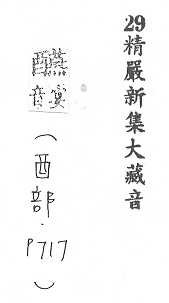 29精嚴新集大藏音
醼
宴音
（酉部．P717）